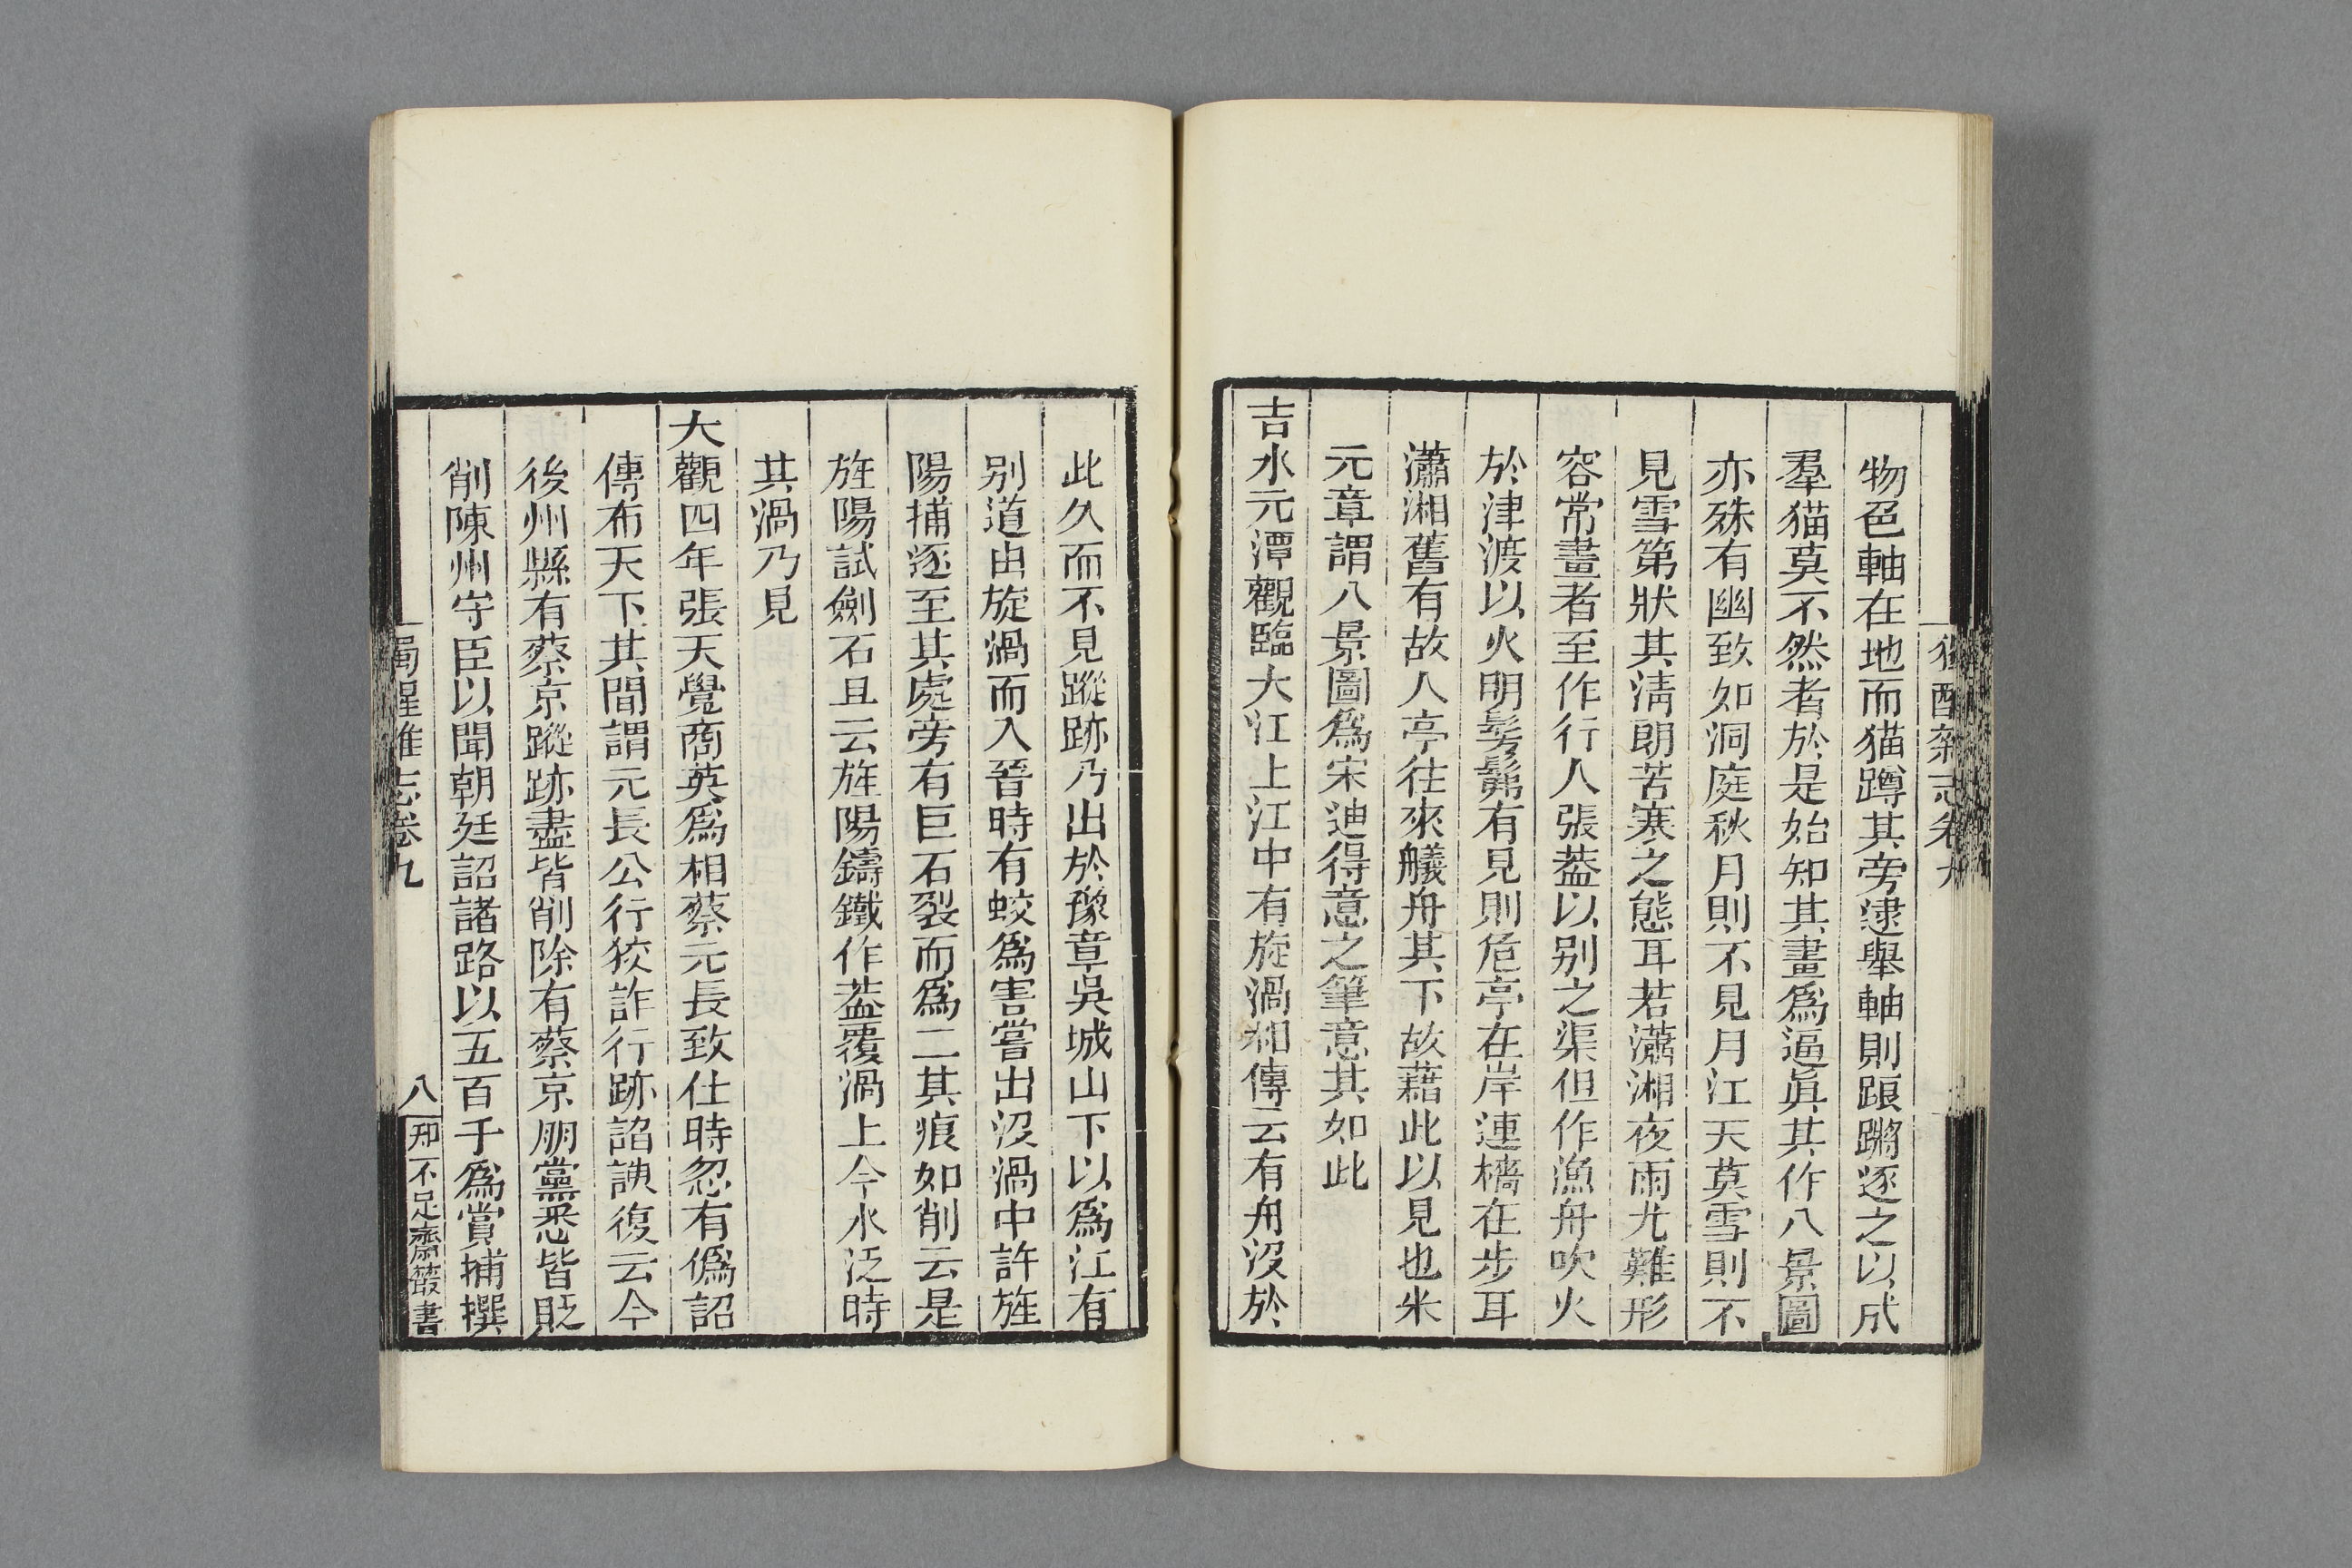 獨醒雜志卷九
物色軸在地而猫蹲其旁逮舉軸則踉蹡逐之以成
羣猫莫不然者於是始知其畫爲逼眞其作八景圖
亦殊有幽致如洞庭秋月則不見月江天莫雪則不
見雪第狀其清朗苦寒之態耳若瀟湘夜雨尤難形
容常畫者至作行人張葢以别之渠但作漁舟吹火
於津渡以火明髣髴有見則危亭在岸連檣在步耳
瀟湘舊有故人亭往來艤舟其下故藉此以見也米
元章謂八景圖爲宋迪得意之筆意其如此
吉水元潭觀臨大江上江中有旋渦相傳云有舟没於
此久而不見蹤跡乃出於豫章吳城山下以爲江有
别道由旋渦而入晉時有蛟爲害嘗出没渦中許旌
陽捕逐至其處旁有巨石裂而爲二其痕如削云是
旌陽試劍石且云旌陽鑄鐵作葢覆渦上今水泛時
其渦乃見
大觀四年張天覺商英爲相蔡元長致仕時忽有僞詔
傳布天下其間謂元長公行狡詐行跡諂諛復云今
後州縣有蔡京蹤跡盡皆削除有蔡京朋黨悉皆貶
削陳州守臣以聞朝廷詔諸路以五百千爲賞捕撰
獨醒雜志卷九
八
知不足齋叢書